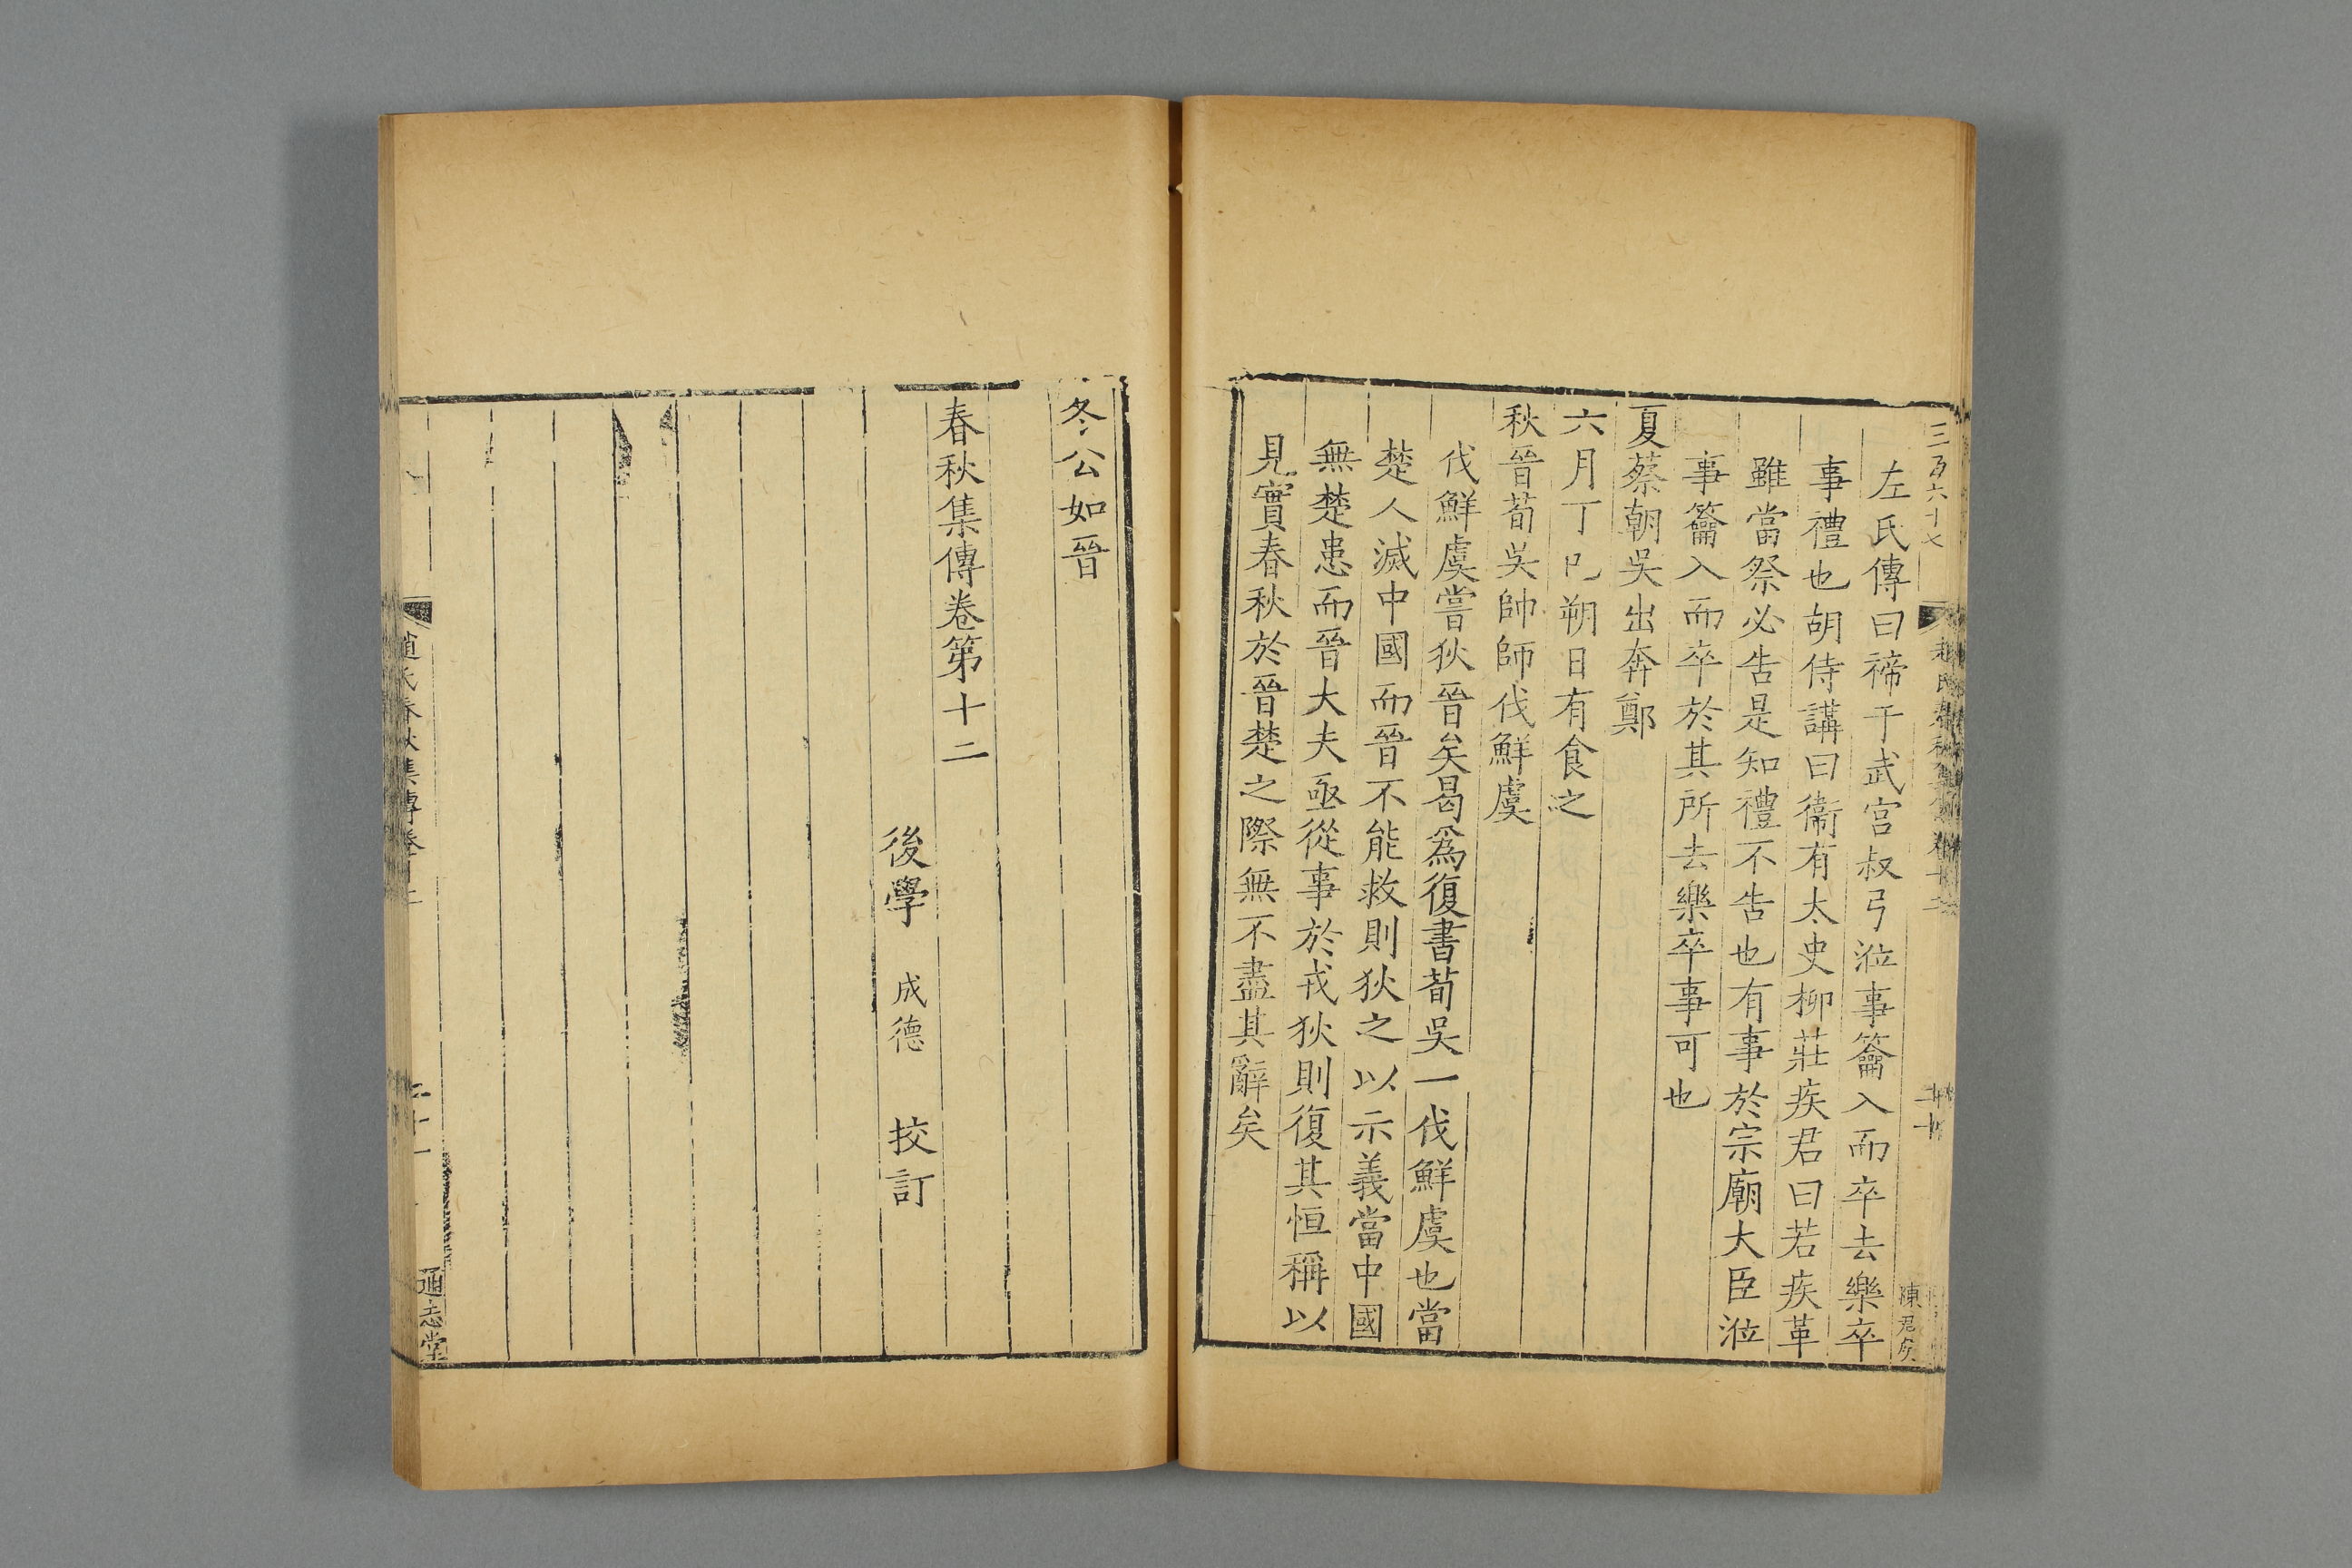 三百六十七
左氏傳曰禘于武宮叔弓涖事籥入而卒去樂卒
事禮也胡侍講曰衞有太史柳莊疾君曰若疾革
雖當祭必告是知禮不告也有事於宗廟大臣涖
事籥入而卒於其所去樂卒事可也
夏蔡朝吳出奔鄭
六月丁巳朔日有食之
秋晉荀吳帥師伐鮮虞
伐鮮虞嘗狄晉矣曷爲復書荀吳一伐鮮虞也當
楚人滅中國而晉不能救則狄之以示義當中國
無楚患而晉大夫亟從事於戎狄則復其恒稱以
見實春秋於晉楚之際無不盡其辭矣
冬公如晉
春秋集傳卷第十二
後學 成德 挍訂
趙氏春秋集傳卷十二
二十一
通志堂